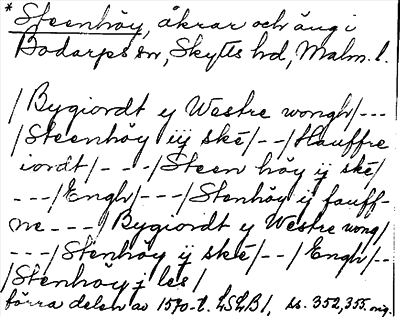 * Steenhöy, åkrar och äng i
Bodarps sn, Skytts hd, Malm. l.
/Bygiordt y Westre wongh/---
/Steenhöy iÿ ské/--/Hauffre
iordt/---/Steen höy ÿ ské/
---/Engh/---/Stenhöy ÿ fauff-
ne---/Bygiordt y Westre wong/
---/Stenhöy ÿ ské/--/Engh/--
/Stenhöy j les/
förra delen av 1570-t. LSLB1, ss. 352, 355, orig.